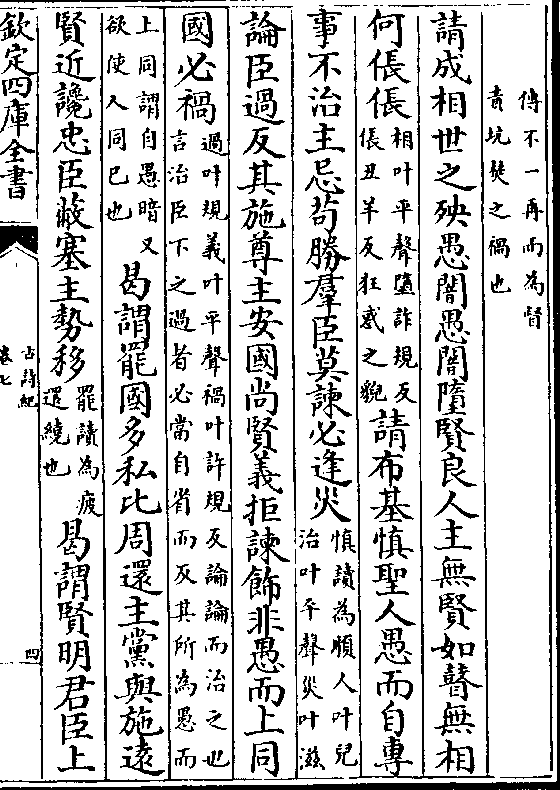 傳不一再而為督
責坑焚之禍也
請成相世之殃愚闇愚闇墮賢良人主無賢如瞽無相
何倀倀
相叶平聲墮許規反
倀丑羊反狂惑之貌
請布基慎聖人愚而自專
事不治主忌苟勝羣臣莫諫必逢災
慎讀為順人叶兒
治叶平聲災叶滋
論臣過反其施尊主安國尚賢義拒諫飾非愚而上同
國必禍
過叶規義叶平聲禍叶許規反論論而治之也
言治臣下之過者必當自省而反其所為愚而
上同謂自愚暗又
欲使人同已也
曷謂罷國多私比周還主黨與施逺
賢近讒忠臣蔽塞主勢移
罷讀為疲
還繞也
曷謂賢明君臣上
欽定四庫全書
古詩紀
卷七
四